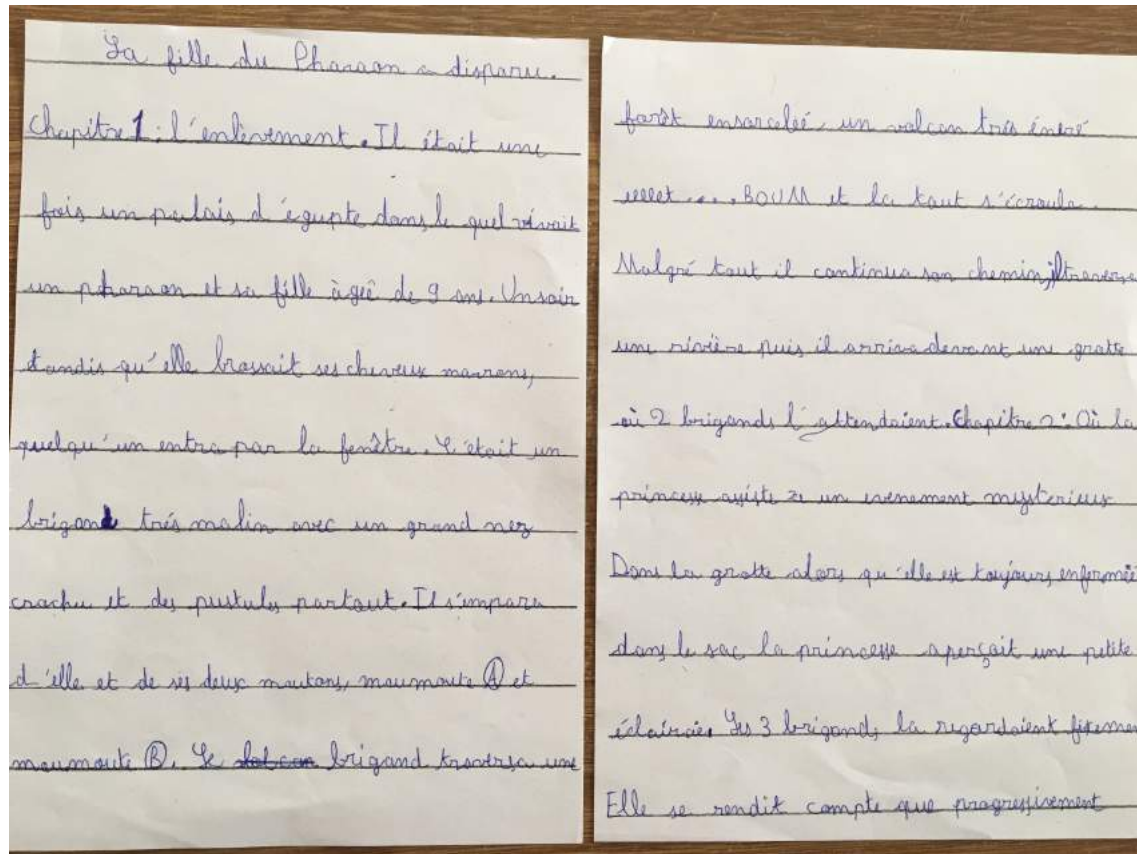 La fille du Pharaon a disparu.
Chapitre 1: l'enlèvement. Il était une
fois un palais d'égupte dans le quel vivait
un pharaon et sa fille àgeé de 9 ans. Un soir
tandis qu'elle brossait ses cheveux marrons,
quelqu'un entra par la fenêtre. C'était un
brigand trés malin avec un grand nez
crochu et des pustules partout. Il s'empara
d'elle et de ses deux moutons, moumoute A et
moumoute B. Le brigand traversa une
forêt ensorceleé, un volcan trés énervé
.... BOUM et la tout s'écroula.
Malgré tout il continua son chemin, il traversa
une rivière puis il arriva devant une grotte
où 2 brigands l'attendaient. Chapitre 2: Où la
princesse assiste a un evenement mysterieux
Dans la grotte alors qu'elle est toujours enfermeé
dans le sac la princesse aperçoit une petite
éclaircie. Les 3 brigands la regardaient fixemen
Elle se rendit compte que progressivement